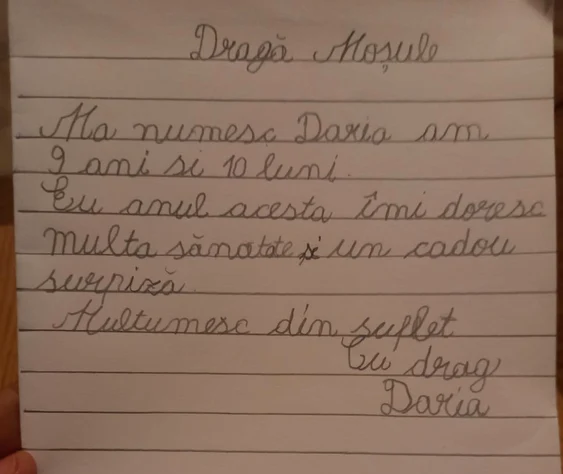 Dragă Moșule
Ma numesc Daria am
9 ani si 10 luni.
Eu anul acesta îmi doresc
multa sănatate și un cadou
surpriză.
Multumesc din suflet
Cu drag
Daria